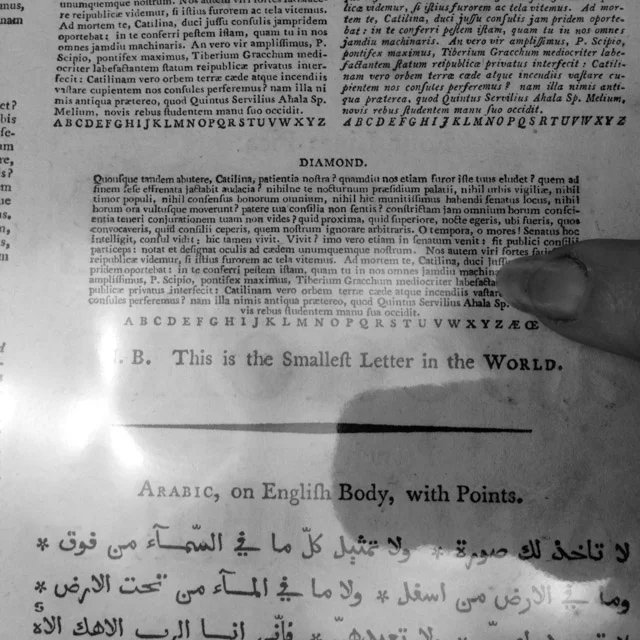 re reipublicæ videmur, ſi iſtius furorem ac tela vitemus.
Ad mortem te, Catilina, duci juſſu conſulis jampridem
oportebat: in te conferri peſtem iſtam, quam tu in nos
omnes jamdiu machinaris. An vero vir ampliſſimus, P.
Scipio, pontifex maximus, Tiberium Gracchum medi-
ocriter labefactantem ſtatum reipublicæ privatus inter-
fecit: Catilinam vero orbem terræ cæde atque incendiis
vaſtare cupientem nos conſules perferemus? nam illa ni
mis antiqua prætereo, quod Quintus Servilius Ahala Sp.
Melium, novis rebus ſtudentem manu ſuo occidit.
A B C D E F G H I J K L M N O P Q R S T U V W X Y Z
licæ videmur, ſi iſtius furorem ac tela vitemus. Ad mor-
tem te, Catilina, duci juſſu conſulis jam pridem oporte-
bat: in te conferri peſtem iſtam, quam tu in nos omnes
jamdiu machinaris. An vero vir ampliſſimus, P. Scipio,
pontifex maximus, Tiberium Gracchum mediocriter labe-
factantem ſtatum reipublicæ privatus interfecit: Catili-
nam vero orbem terræ cæde atque incendiis vaſtare cu-
pientem nos conſules perferemus? nam illa nimis anti-
qua prætereo, quod Quintus Servilius Ahala Sp. Melium,
novis rebus ſtudentem manu ſuo occidit.
A B C D E F G H I J K L M N O P Q S R T U V W X Y Z
DIAMOND.
Quouſque tandem abutere, Catilina, patientia noſtra? quamdiu nos etiam furor iſte tuus eludet? quem ad
finem ſeſe effrenata jactabit audacia? nihilne te nocturnum præſidium palatii, nihil urbis vigiliæ, nihil
timor populi, nihil conſenſus bonorum omnium, nihil hic munitiſſimus habendi ſenatus locus, nihil
horum ora vultuſque moverunt? patere tua conſilia non ſentis? conſtrictam jam omnium horum conſci-
entia teneri conjurationem tuam non vides? quid proxima, quid ſuperiore, nocte egeris, ubi fueris, quos
convocaveris, quid conſilii ceperis, quem noſtrum ignorare arbitraris. O tempora, o mores! Senatus hoc
intelligit, conſul vidit; hic tamen vivit. Vivit? imo vero etiam in ſenatum venit: fit publici conſilii
particeps: notat et deſignat oculis ad cædem unumquemque noſtrum. Nos autem viri fortes
reipublicæ videmur, ſi iſtius furorem ac tela vitemus. Ad mortem te, Catilina, duci
pridem oportebat: in te conferri peſtem iſtam, quam tu in nos omnes jamdiu
ampliſſimus, P. Scipio, pontifex maximus, Tiberium Gracchum mediocriter
publicæ privatus interfecit: Catilinam vero orbem terræ cæde atque incendiis vaſtare
conſules perferemus? nam illa nimis antiqua prætereo, quod Quintus Servilius Ahala Sp.
via rebus ſtudentem manu ſuo occidit.
A B C D E F G H I J K L M N O P Q R S T U V W X Y Z Æ Œ
B. This is the Smalleſt Letter in the WORLD.
ARABIC, on Engliſh Body, with Points.
لا تاخذ لك صورة * ولا تمثيل كلّ ما في السّمـآء من فوق *
وما في الارض من اسفل * ولا ما في المـآء من تحت الارض *
5
ولا تعبدهنّ * فانّي انـا الرب الاهك الاه